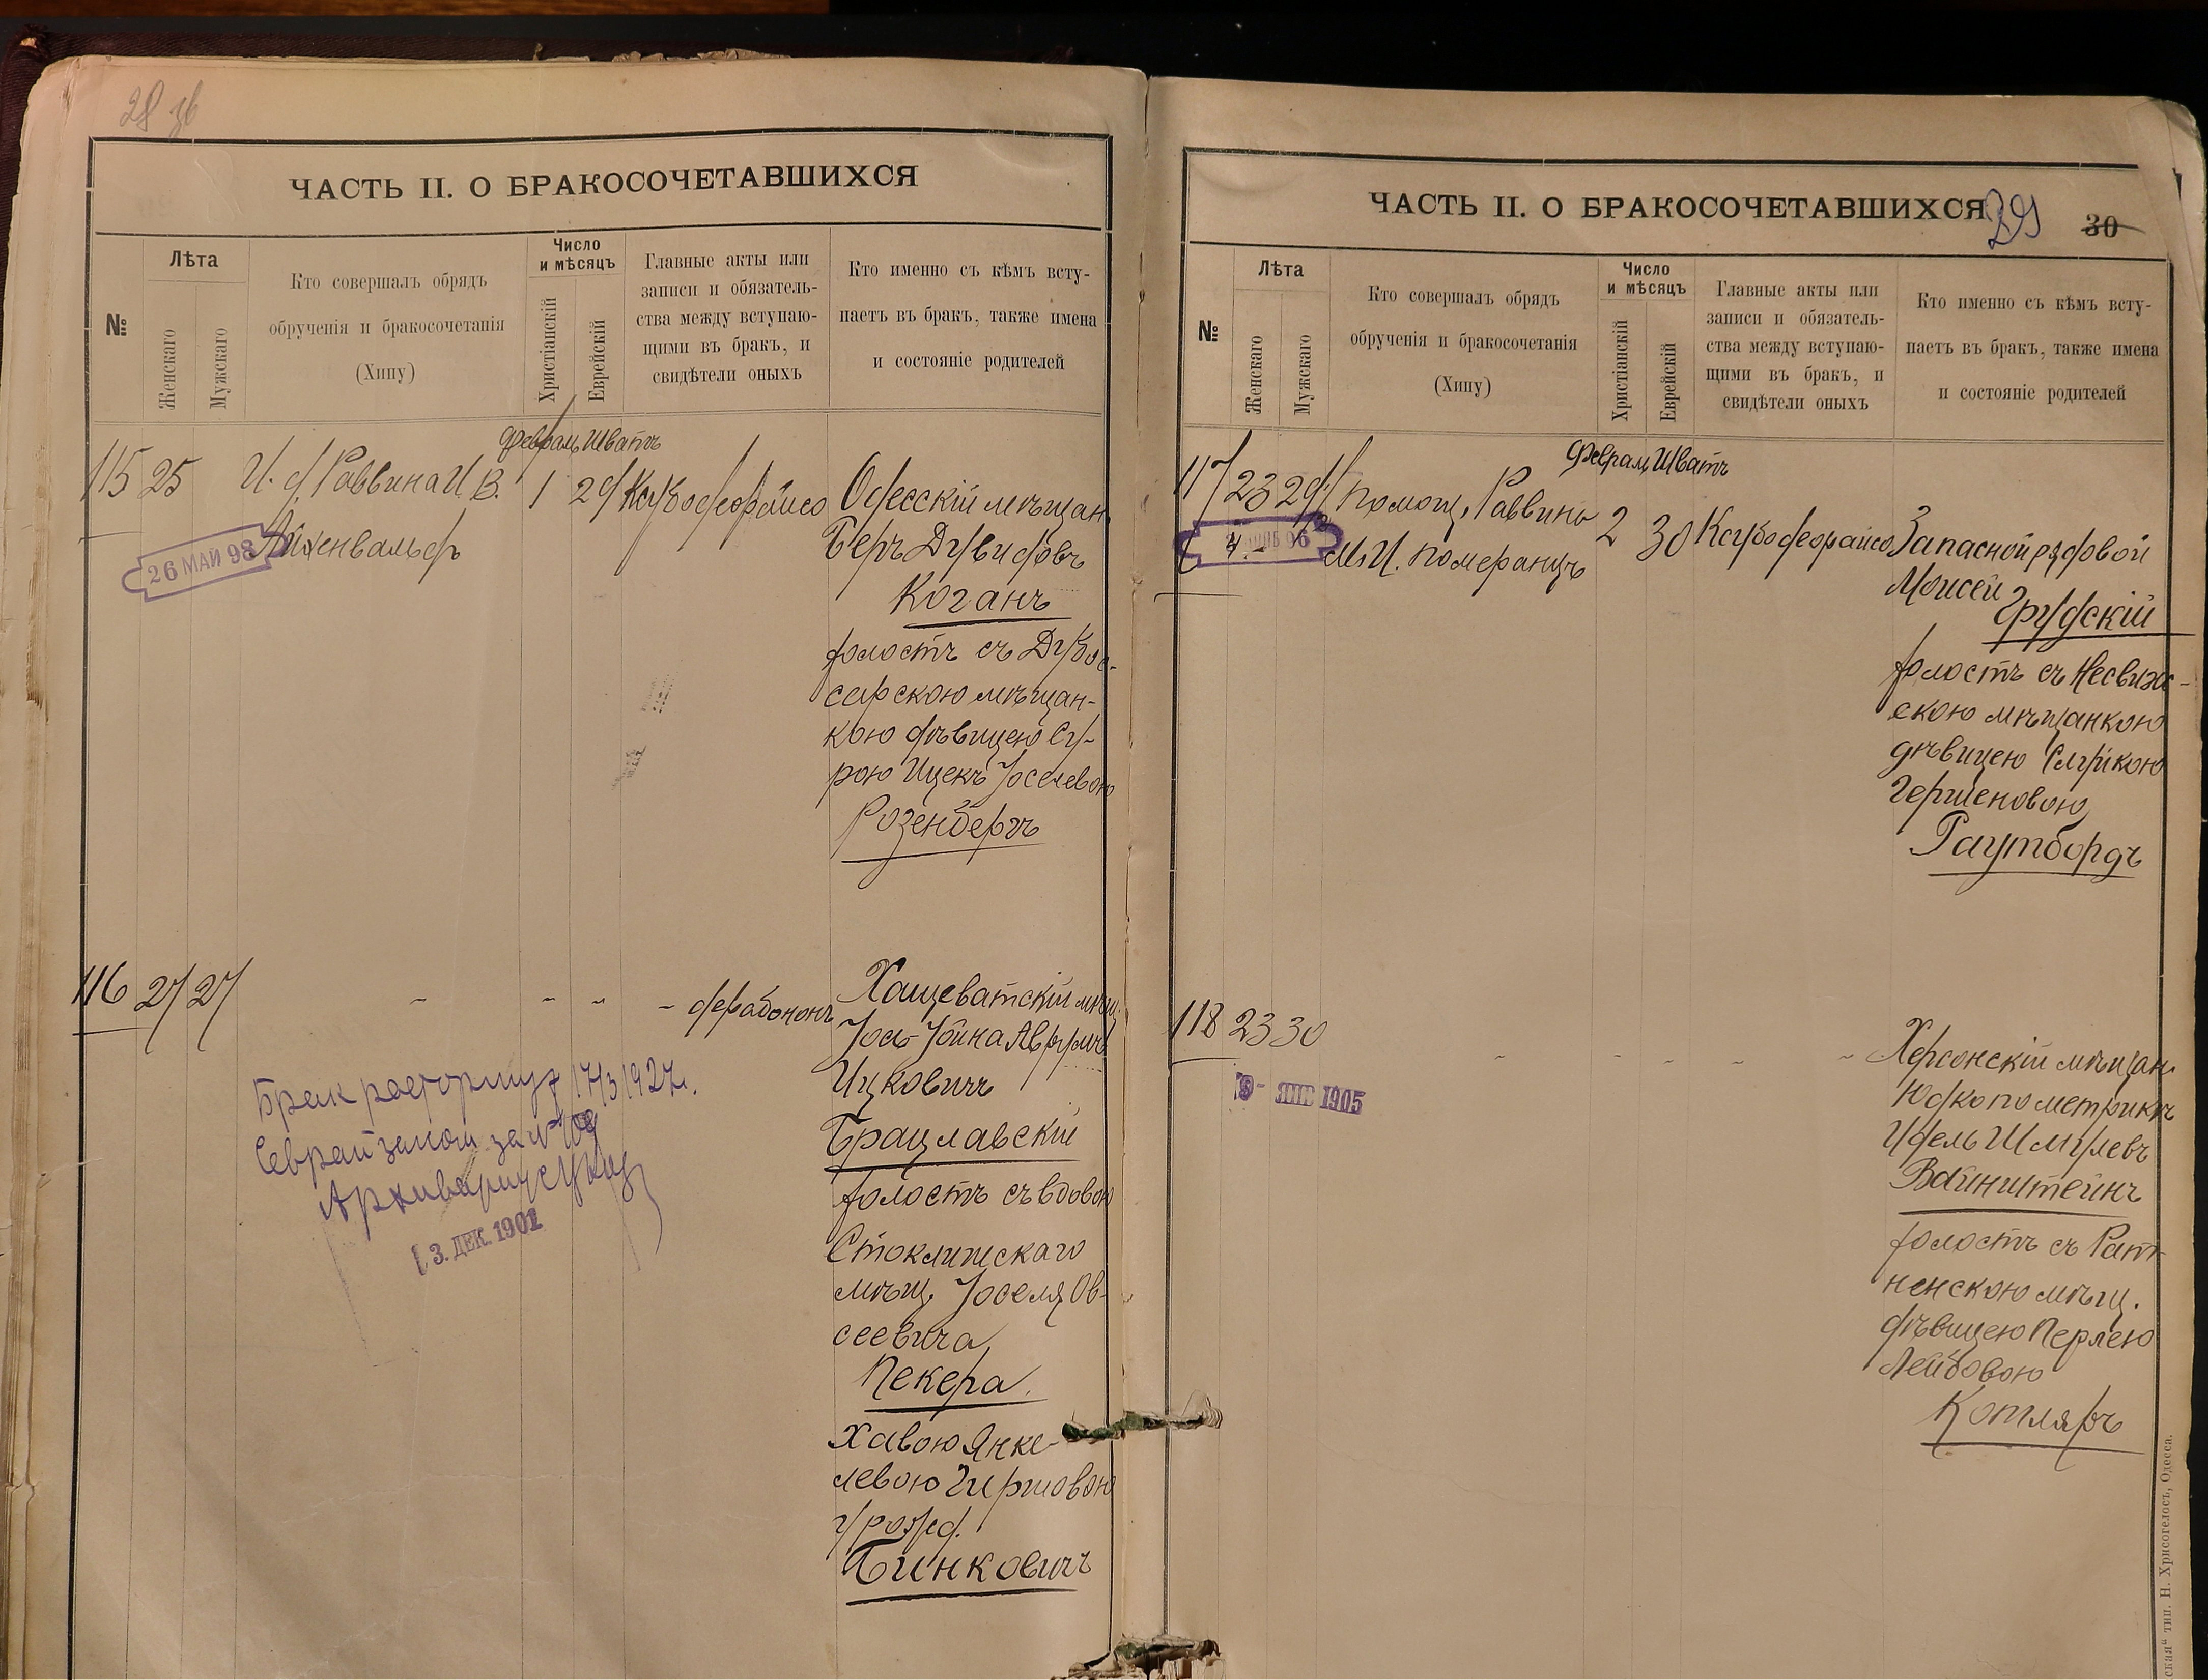 28 зв
ЧАСТЬ II. О БРАКОСОЧЕТАВШИХСЯ
№
Лѣта
Женскаго
Мужскаго
Кто совершалъ обрядъ
обрученія и бракосочетанія
(Хипу)
Число
и мѣсяцъ
Христіанскій
Еврейскій
Главные акты или
записи и обязатель-
ства между вступаю-
щими въ бракъ, и
свидѣтели оныхъ
Кто именно съ кѣмъ всту-
паетъ въ бракъ, также имена
и состояніе родителей
Февраль Шватъ
115 25 И. д. Раввина И. В. 1 29
Айхенвальдъ
26 МАЙ 98
Одесскій мѣщан.
Беръ Дувидовъ
Коганъ
холостъ съ Дубос-
сарскою мѣщан-
кою дѣвицею Су-
рою Ицекъ Іоселевою
Розенбергъ
116 27 27 - - - -
Хащеватскій мѣщ.
Іось Іойна Аврумъ
Ицковичъ
Брацлавскій
холостъ съ вдовою
Стоклишскаго
мѣщ. Іоселя Ов-
сеевича
Пекера
Хавою Янке-
левою Гиршовою
урожд.
Бинковичъ
Брак расторгнут 17/3 1927 г.
Архивариус
13. ДЕК. 1901
ЧАСТЬ II. О БРАКОСОЧЕТАВШИХСЯ
29 30
№
Лѣта
Женскаго
Мужскаго
Кто совершалъ обрядъ
обрученія и бракосочетанія
(Хипу)
Число
и мѣсяцъ
Христіанскій
Еврейскій
Главные акты или
записи и обязатель-
ства между вступаю-
щими въ бракъ, и
свидѣтели оныхъ
Кто именно съ кѣмъ всту-
паетъ въ бракъ, также имена
и состояніе родителей
Февраль Шватъ
117 23 29 Помощ. Раввина 2 30
М. И. Померанцъ
Запасной рядовой
Моисей
Грудскій
холостъ съ Несвиж-
скою мѣщанкою
дѣвицею
Гершеновою
Раутбордъ
118 23 30 - - - - -
9- ЯНВ 1905
Херсонскій мѣщан.
Юдко по метрикѣ
Удель Шмулевъ
Вайнштейнъ
холостъ съ Рат-
ненскою мѣщ.
дѣвицею Перлею
Лейбовою
Котляръ
тип. Н. Хрисогелосъ, Одесса.